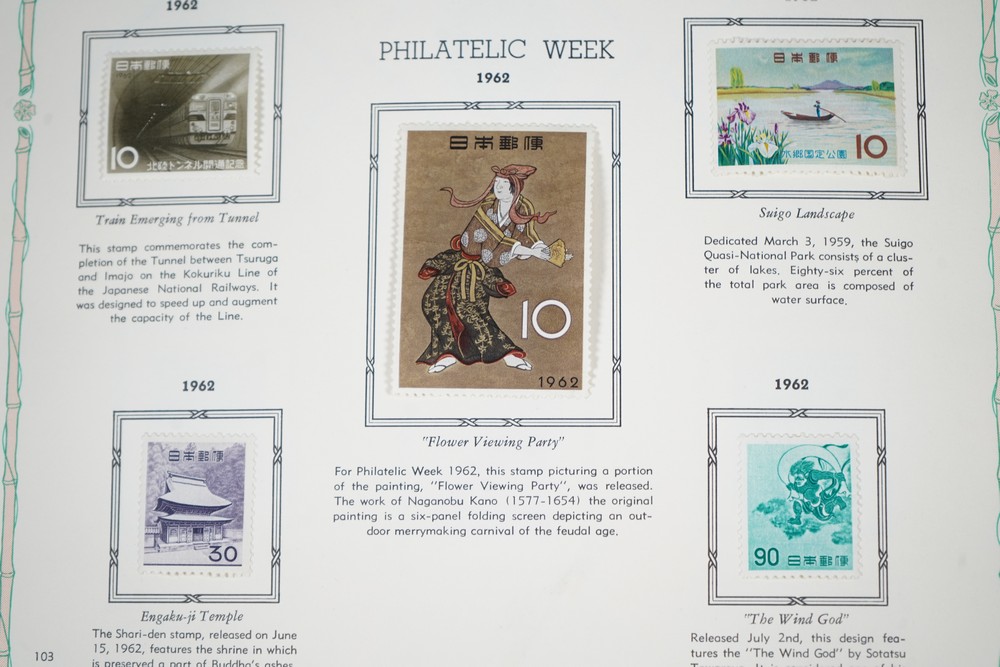 1962
日本郵便
10
北陸トンネル開通記念
Train Emerging from Tunnel
This stamp commemorates the com-
pletion of the Tunnel between Tsuruga
and Imajo on the Kokuriku Line of
the Japanese National Railways. It
was designed to speed up and augment
the capacity of the Line.
PHILATELIC WEEK
1962
日本郵便
10
1962
"Flower Viewing Party"
For Philatelic Week 1962, this stamp picturing a portion
of the painting, "Flower Viewing Party", was released.
The work of Naganobu Kano (1577-1654) the original
painting is a six-panel folding screen depicting an out-
door merrymaking carnival of the feudal age.
日本郵便
水郷国定公園 10
Suigo Landscape
Dedicated March 3, 1959, the Suigo
Quasi-National Park consists of a clus-
ter of lakes. Eighty-six percent of
the total park area is composed of
water surface.
1962
日本郵便
30
Engaku-ji Temple
The Shari-den stamp, released on June
15, 1962, features the shrine in which
is preserved a part of Buddha's ashes.
1962
90 日本郵便
"The Wind God"
Released July 2nd, this design fea-
tures the "The Wind God" by Sotatsu
103